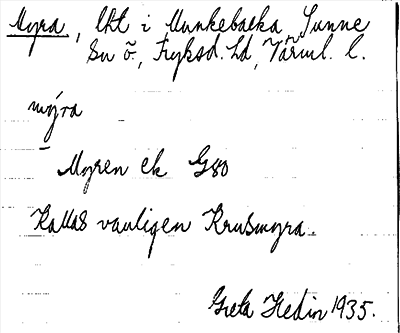 Myra, lht i Munkebacka, Sunne
Sn Ö., Fryksd. hd, Värml. l.
my̆ra
Myren ek G80
Kallas vanligen Krusmyra.
Greta Hedin 1935.